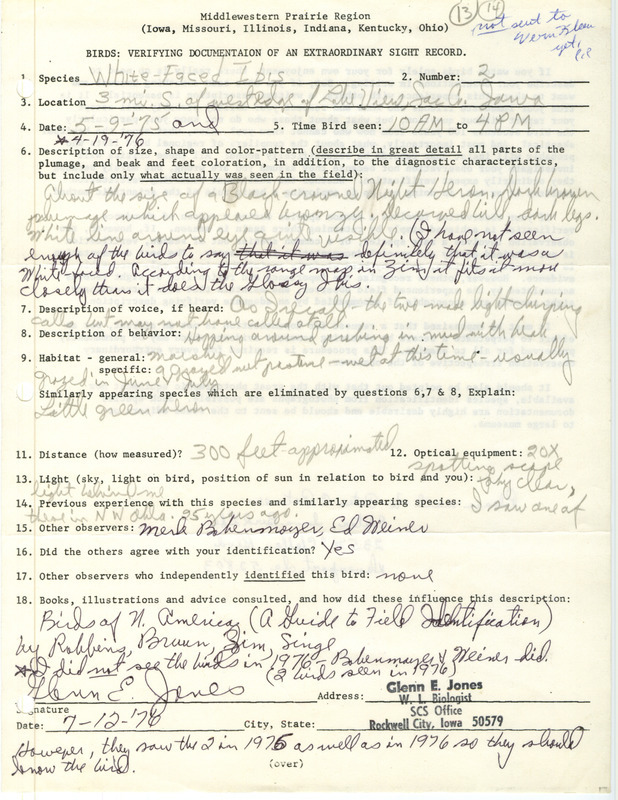 Middlewestern Prairie Region
13 14
(Iowa, Missouri, Illinois, Indiana, Kentucky, Ohio)
not sent to
Vern Kleen
yet,
BIRDS: VERIFYING DOCUMENTAION OF AN EXTRAORDINARY SIGHT RECORD.
1. Species White-Faced Ibis 2. Number: 2
3. Location 3 mi. S. of west edge of Lake View, Sac Co. Iowa
4. Date: 5-9-'75 and 5. Time Bird seen: 10 AM to 4 PM
*4-19-'76
6. Description of size, shape and color-pattern (describe in great detail all parts of the
plumage, and beak and feet coloration, in addition, to the diagnostic characteristics,
but include only what actually was seen in the field):
About the size of a Black-crowned Night Heron, dark brown
plumage which appeared bronzy. decurved bill, dark legs.
White line around eye quite visible. (I have not seen
enough of the birds to say that it was definitely that it was a
White-faced. According to the range map in Zim, it fits it more
closely than it does the Glossy Ibis.
7. Description of voice, if heard: As I recall - the two made light chirping
calls but may not have called at all.
8. Description of behavior: Hopping around probing in mud with beak
9. Habitat - general: marshy
specific: a grazed wet pasture - wet at this time - usually
grazed in June & July
Similarly appearing species which are eliminated by questions 6,7 & 8, Explain:
Little green heron
11. Distance (how measured)? 300 feet - approximated 12. Optical equipment: 20X
spotting scope
13. Light (sky, light on bird, position of sun in relation to bird and you): sky clear,
light behind me
14. Previous experience with this species and similarly appearing species: I saw one of
these in N.W. Okla. 25 years ago.
15. Other observers: Merle Bohenmoyer, Ed Weiner
16. Did the others agree with your identification? Yes
17. Other observers who independently identified this bird: none
18. Books, illustrations and advice consulted, and how did these influence this description:
Birds of N. America (A Guide to Field Identification)
by Robbins, Bruun, Zim, Singe
*I did not see the birds in 1976 - Bohenmoyer & Weiner did.
(2 birds seen in 1976)
Glenn E. Jones Address: Glenn E. Jones
Signature W. L. Biologist
SCS Office
Date: 7-12-'76 City, State: Rockwell City, Iowa 50579
However, they saw the 2 in 1975 as well as in 1976 so they should
know the bird.
(over)